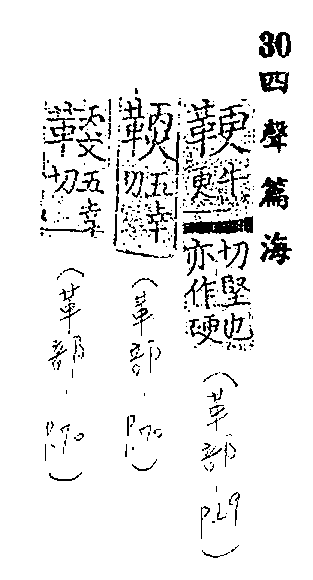 30 四聲篇海
鞕 牛更
切堅也
亦作硬
（革部．P.69）
五幸切
（革部．P.70）
五幸切
（革部．P.70）